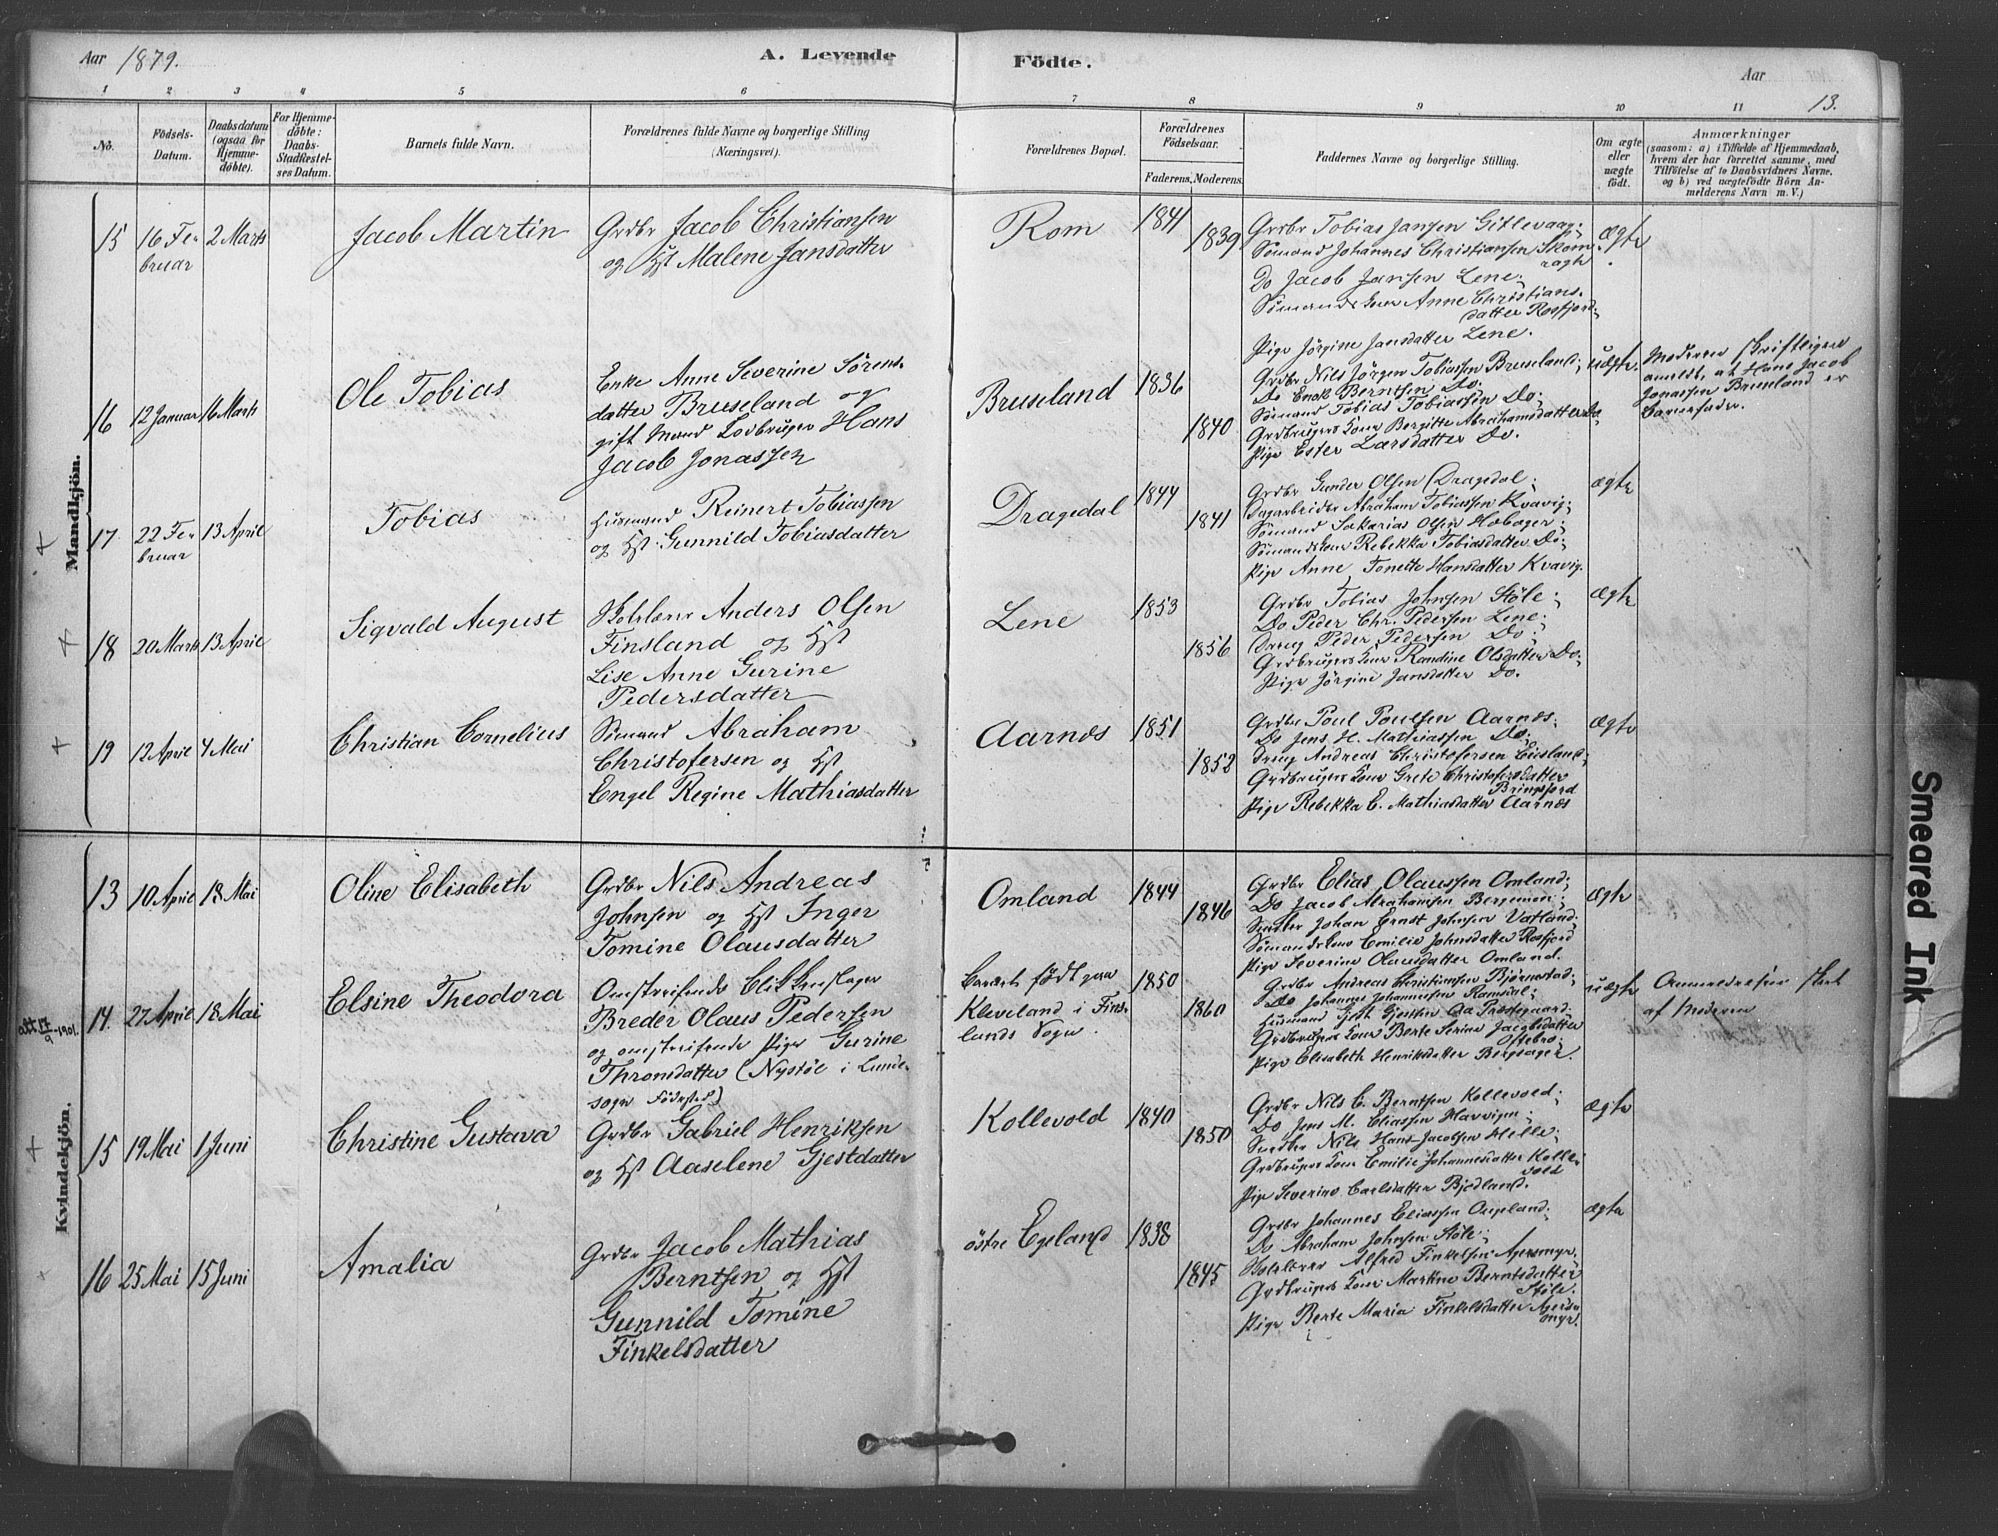 Aar 1879.
A. Levende
Födte.
Aar
13.
1 2 3 4 5 6 7 8 9 10 11
No.
Födsels-Datum.
Daabsdatum (ogsaa for Hjemme-döbte).
For Hjemme-döbte: Daabs-Stadfæstel-ses Datum.
Barnets fulde Navn.
Forældrenes fulde Navne og borgerlige Stilling
(Næringsvei).
Forældrenes Bopæl.
Forældrenes Födselsaar.
Faderens. Moderens.
Faddernes Navne og borgerlige Stilling.
Om ægte eller uægte födt.
Anmærkninger
(saasom: a) i Tilfælde af Hjemmedaab,
hvem der har forrettet samme, med
Tilföielse af to Daabsvidners Navne,
og b) ved uægtefödte Börn An-
melderens Navn m. V.)
Mandkjön.
15 16 Fe 2 Marts Jacob Martin Grdbr Jacob Christiansen Rom 1841
bruar og Hst Malene Jansdatter 1839
Grdbr Tobias Jansen Gitlevaag;
Sömand Johannes Christiansen Skom
ragte
ægte
Do Jacob Jansen Lene;
Sömands Kone Anne Christians
datter Rosfjord;
Pige Jörgine Jansdatter Lene.
16 12 Januar 16 Marts Ole Tobias
Enke Anne Severine Sörens
datter Bruseland og
gift Mand Hans
Jacob Jonassen
Bruseland 1836
1840
Grdbr Nils Jörgen Tobiassen Bruseland;
Do Enok Berntsen Do;
Sömand Tobias Tobiassen Do;
Grdbrugers Kone Bergitte Abrahamsdatter Do
Pige Ester Larsdatter Do.
uægte.
Moderen skriftligen
anmeldt, at Hans Jacob
Jonassen Bruseland er
Barnefader.
+ 17 22 Fe 13 April Tobias
bruar
Husmand Reinert Tobiassen
og Hst Gunnild Tobiasdatter
Dragedal 1844
1841
Grdbr Gunder Olsen Dragedal;
Dagarbeider Abraham Tobiassen Kvavig;
Sömand Sakarias Olsen
Sömands Kone Rebekka Tobiasdatter Do;
Pige Anne Tonette Hansdatter Kvavig.
ægte
+ 18 20 Marts 13 April Sigvald August
Anders Olsen
Finsland og Hst
Lise Anne Gurine
Pedersdatter
Lene 1853
1856
Grdbr Tobias Johnsen Stöle;
Do Peder Chr. Pedersen Lene;
Dreng Peder Pedersen Do;
Grdbrugers Kone Randine Olsdatter Do;
Pige Jörgine Jansdatter Do.
ægte
+ 19 12 April 4 Mai Christian Cornelius
Sömand Abraham
Christofersen og Hst
Engel Regine Mathiasdatter
Aarnes 1851
1852
Grdbr Poul Poulsen Aarnes;
Do Jens H. Mathiassen Do;
Dreng Andreas Christofersen
Grdbrugers Kone Grete Christofersdatter
Bringsjord
Pige Rebekka E. Mathiasdatter Aarnes
ægte
Kvindekjön.
13 10 April 18 Mai Oline Elisabeth
Grdbr Nils Andreas
Johnsen og Hst Inger
Tomine Olausdatter
Omland 1844
1846
Grdbr Elias Olaussen Omland;
Do Jacob Abrahamsen
Johan Ernst Johnsen Vatland.
Sömands Kone Emilie Johnsdatter Rosfjord
Pige Severine Olausdatter Omland.
ægte
att 17/9 1901. 14. 27 April 18 Mai Elsine Theodora
Omstreifende Blikkenslager
Breder Olaus Pedersen
og omstreifende Pige Gurine
Thronsdatter (Nystöl i Lunde-
sogn Födested)
Barnet födt paa
Kleveland i Fins-
lands Sogn.
1850
1860
Grdbr Andreas Christiansen Bjørnestad;
Do Johannes Johannessen
Husmand
Grdbrugers Kone Berte Serine Jacobsdatter
Oftebro;
Pige Elisabeth Henriksdatter Bergsager.
uægte
sket
af Moderen
+ 15 19 Mai 1 Juni Christine Gustava
Grdbr Gabriel Henriksen
og Hst Aaselene Gjestdatter
Kollevold 1840
1850
Grdbr Nils C. Berntsen Kollevold;
Do Jens M. Eliassen
Nils Hans Jacobsen Helle;
Grdbrugers Kone Emilie Johannesdatter Kolle
vold
Pige Severine Carlsdatter Bjødland.
ægte
+ 16 25 Mai 15 Juni Amalia
Grdbr Jacob Mathias
Berntsen og Hst
Gunnild Tomine
Finkelsdatter
östre Egeland 1838
1845
Grdbr Johannes Eliassen
Do Abraham Johnsen Stöle;
Alfred Finkelsen Agersmyr,
Grdbrugers Kone Martine Berntsdatter
Stöle.
Pige Berte Maria Finkelsdatter Agers
myr.
ægte
Smeared Ink